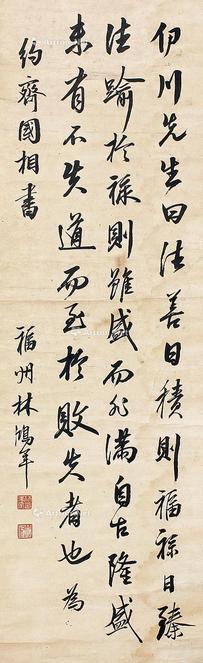 伊川先生曰德善日積則福祿日臻
德踰於祿則雖盛而非滿自古隆盛
未有不失道而至於敗失者也為
約齋國相書
福州林鴻年